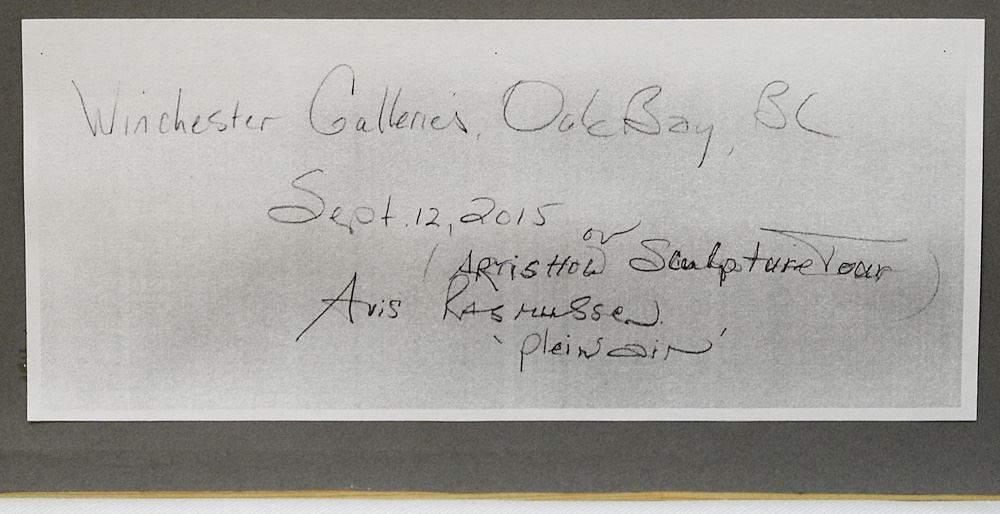 Winchester Galleries, Oak Bay, BC
Sept. 12, 2015
(ARTISHOW or Sculpture Tour)
Avis Rasmussen
'plein air'